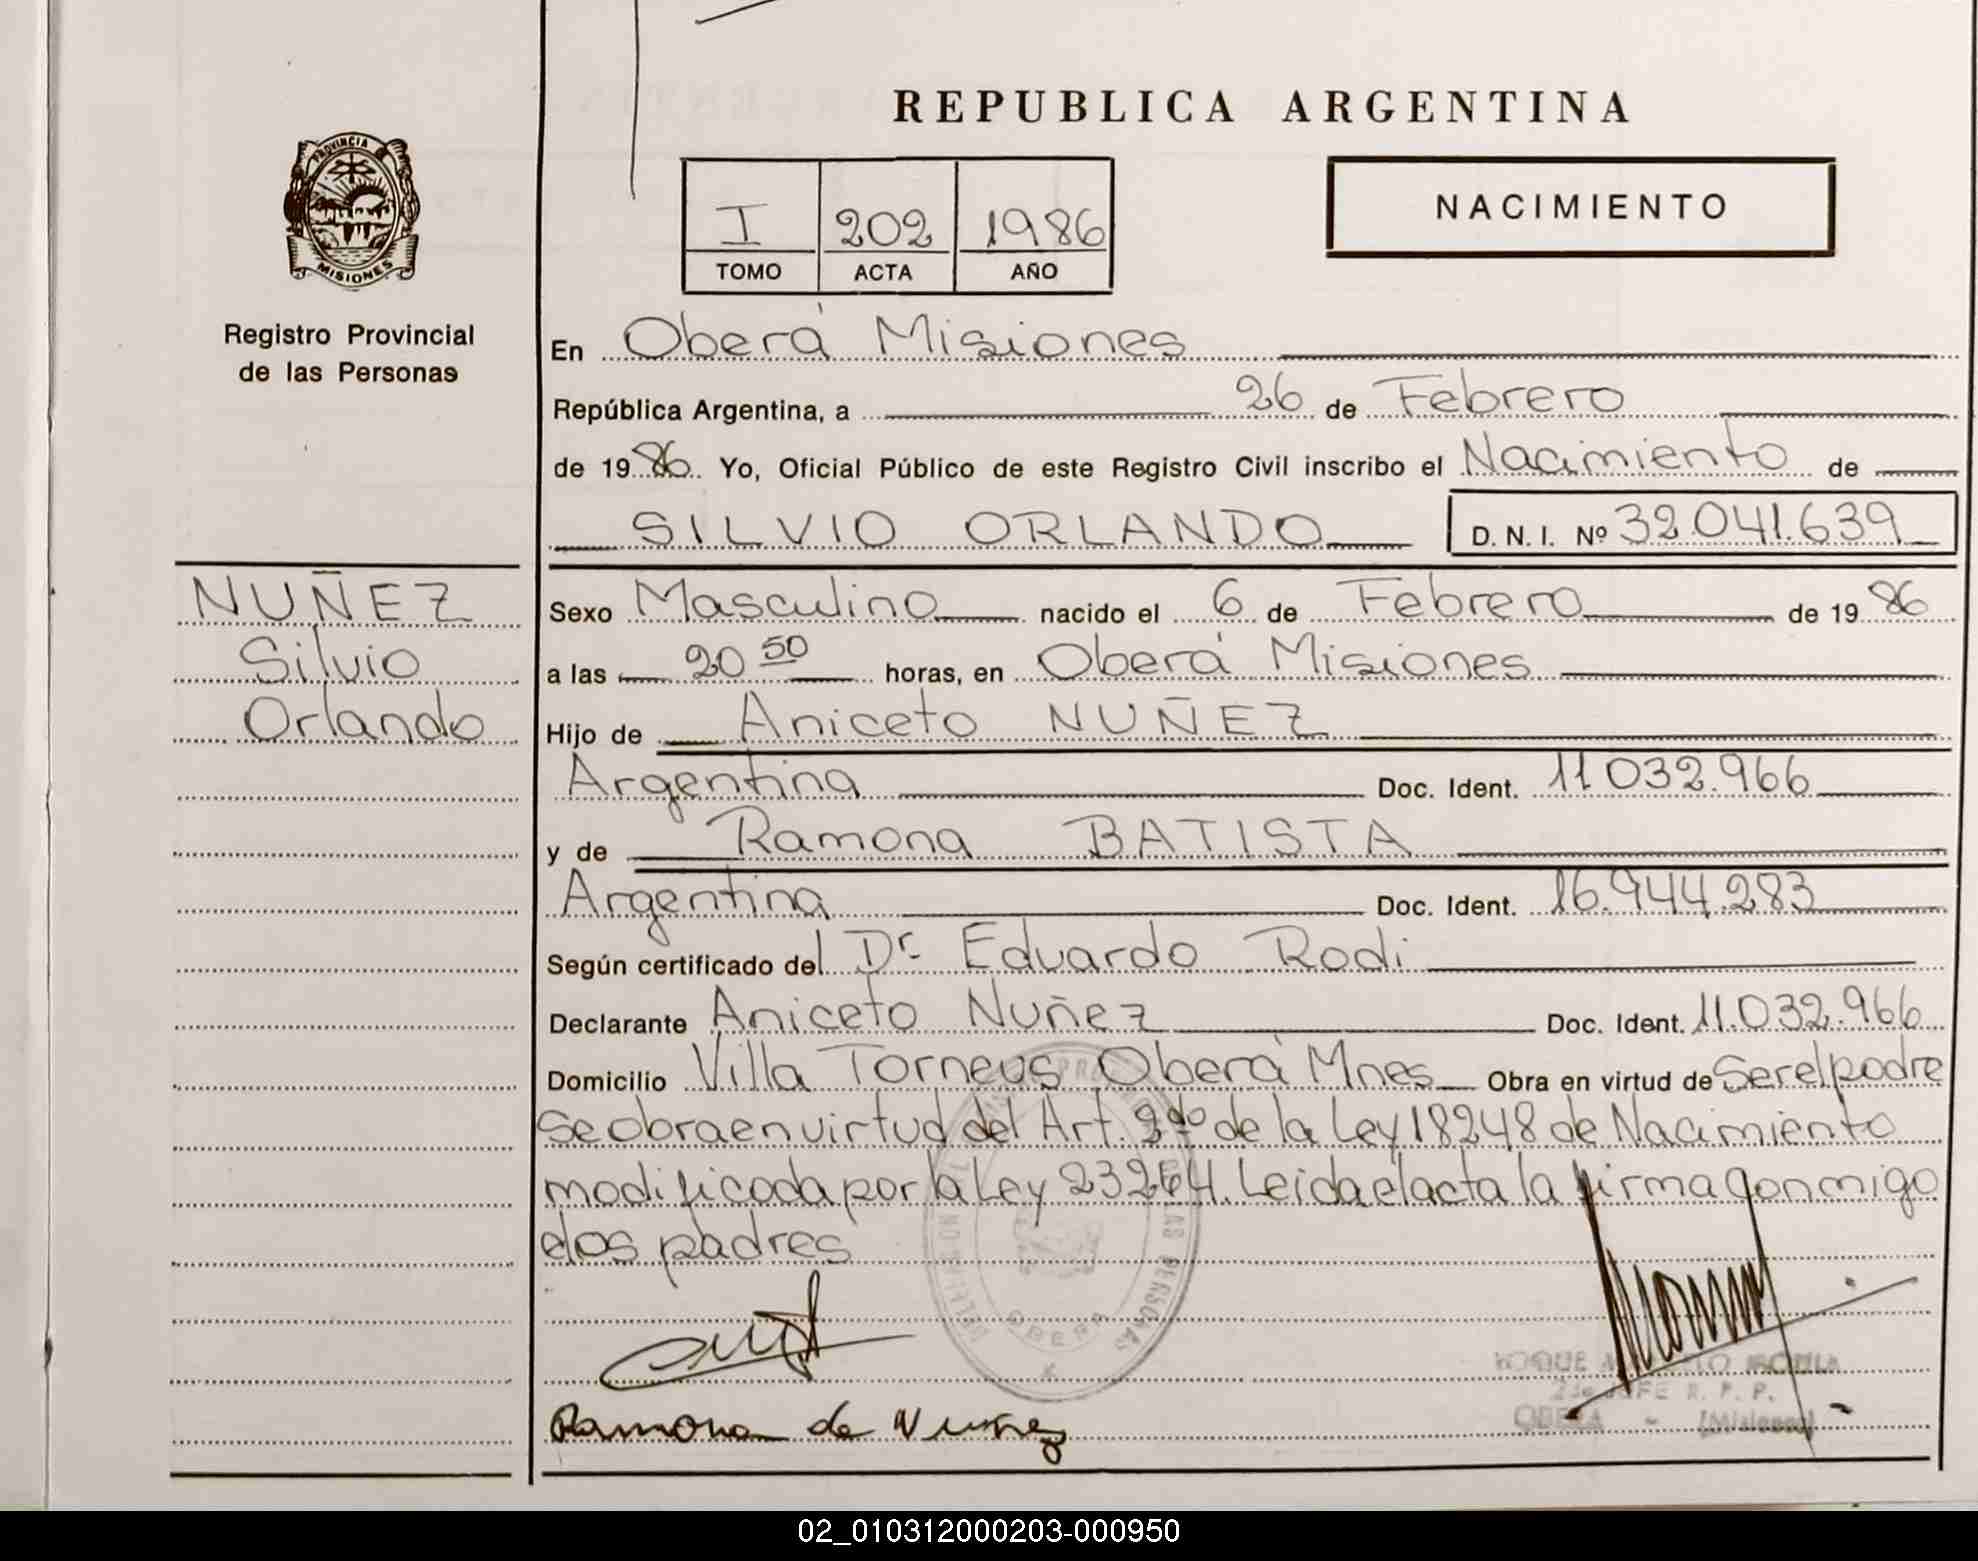 REPUBLICA ARGENTINA
PROVINCIA
MISIONES
Registro Provincial
de las Personas
I 202 1986
TOMO ACTA AÑO
NACIMIENTO
En Oberá Misiones
República Argentina, a 26 de Febrero
de 1986. Yo, Oficial Público de este Registro Civil inscribo el Nacimiento de
SILVIO ORLANDO D. N. I. Nº 32.041.639
NUÑEZ
Silvio
Orlando
Sexo Masculino nacido el 6 de Febrero de 1986
a las 20 50 horas, en Oberá Misiones
Hijo de Aniceto NUÑEZ
Argentina Doc. Ident. 11032.966
y de Ramona BATISTA
Argentina Doc. Ident. 16.944.283
Según certificado del Dr Eduardo Rodi
Declarante Aniceto Nuñez Doc. Ident. 11.032.966
Domicilio Villa Torneus Oberá Mnes Obra en virtud de Ser el padre
Se obra en virtud del Art. 2do de la Ley 18248 de Nacimiento
modificada por la Ley 23264. Leida el acta la firma conmigo
los padres
Ramona de Nuñez
LAS PERSONAS
OBERA
ROQUE
2do JEFE R. P. P.
OBERA - (Misiones)
02_010312000203-000950